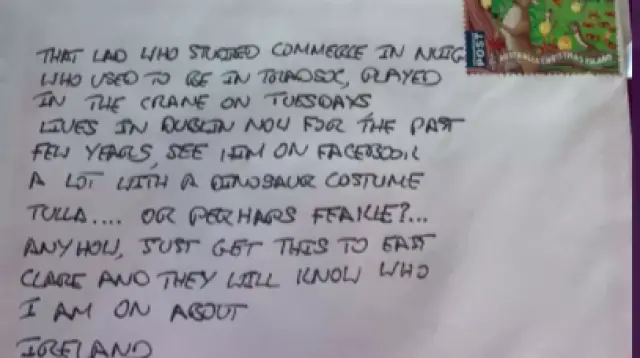 THAT LAD WHO STUDIED COMMERCE IN NUIG
WHO USED TO BE IN TRADSOC, PLAYED
IN THE CRANE ON TUESDAYS
LIVES IN DUBLIN NOW FOR THE PAST
FEW YEARS, SEE HIM ON FACEBOOK
A LOT WITH A DINOSAUR COSTUME
TULLA.... OR PERHAPS FEAKLE?...
ANYHOW, JUST GET THIS TO EAST
CLARE AND THEY WILL KNOW WHO
I AM ON ABOUT
IRELAND
POST
AUSTRALIA CHRISTMAS ISLAND